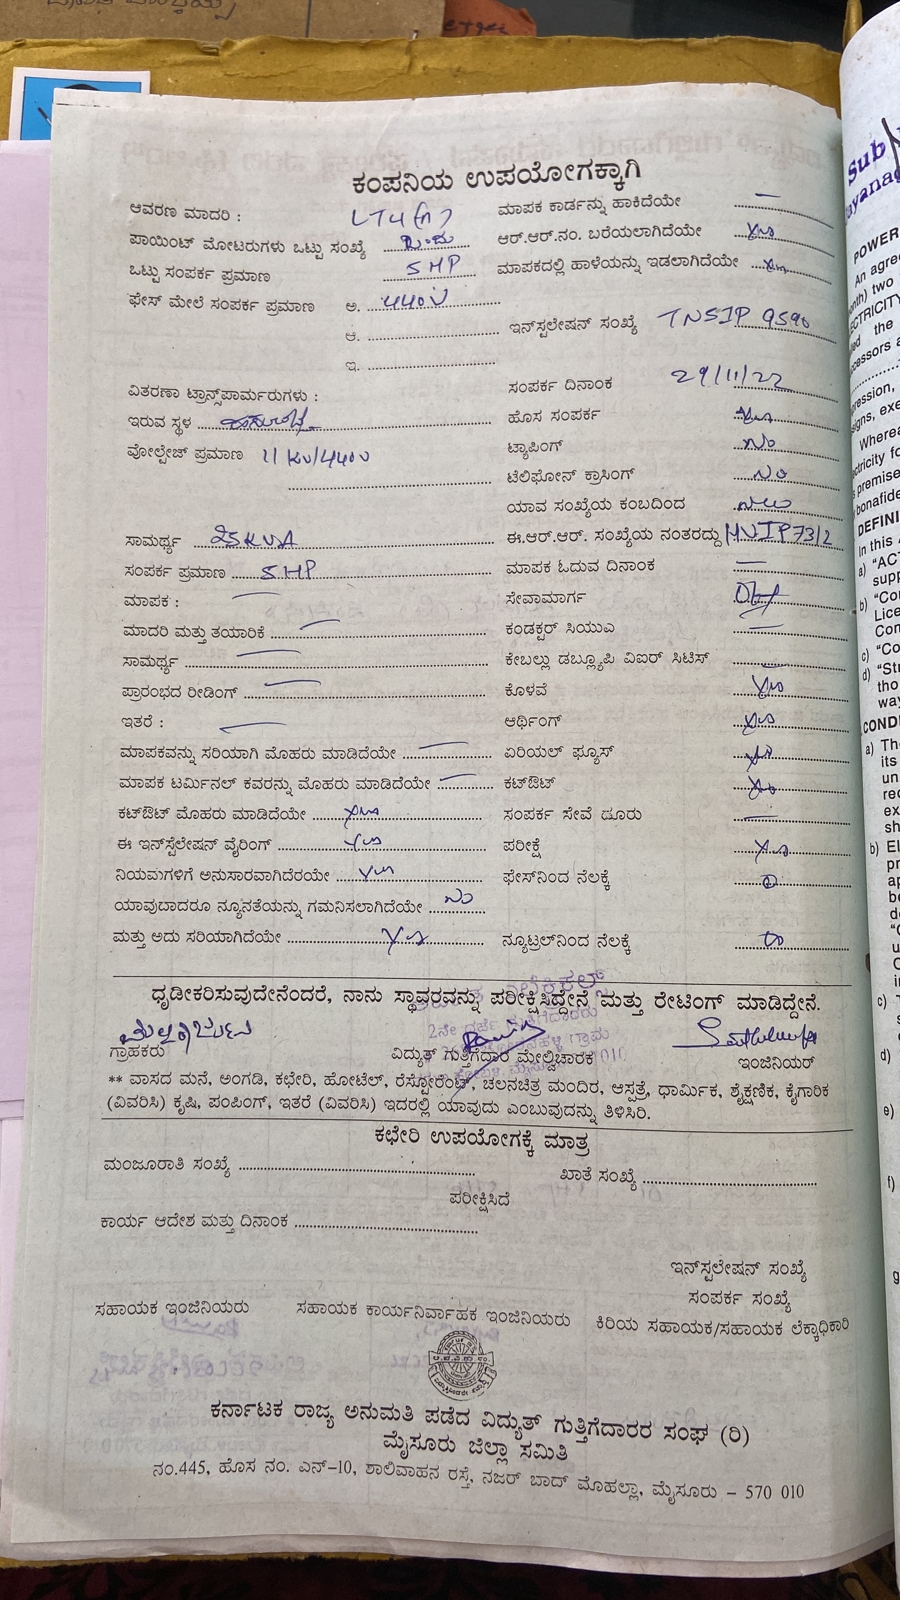 ಕಂಪನಿಯ ಉಪಯೋಗಕ್ಕಾಗಿ
ಆವರಣ ಮಾದರಿ : LT4(A) ಮಾಪಕ ಕಾರ್ಡನ್ನು ಹಾಕಿದೆಯೇ —
ಪಾಯಿಂಟ್ ಮೋಟರುಗಳು ಒಟ್ಟು ಸಂಖ್ಯೆ ಒಂದು ಆರ್.ಆರ್.ನಂ. ಬರೆಯಲಾಗಿದೆಯೇ Yes
ಒಟ್ಟು ಸಂಪರ್ಕ ಪ್ರಮಾಣ 5HP ಮಾಪಕದಲ್ಲಿ ಹಾಳೆಯನ್ನು ಇಡಲಾಗಿದೆಯೇ Yes
ಫೇಸ್ ಮೇಲೆ ಸಂಪರ್ಕ ಪ್ರಮಾಣ ಅ. 440V
ಆ. ಇನ್‌ಸ್ಟಲೇಷನ್ ಸಂಖ್ಯೆ TNSIP 9590
ಇ.
ವಿತರಣಾ ಟ್ರಾನ್ಸ್‌ಪಾರ್ಮರುಗಳು : ಸಂಪರ್ಕ ದಿನಾಂಕ 29/11/22
ಇರುವ ಸ್ಥಳ ಹೊಸ ಸಂಪರ್ಕ Yes
ವೋಲ್ಟೇಜ್ ಪ್ರಮಾಣ 11KV/440V ಟ್ಯಾಪಿಂಗ್ No
ಟೆಲಿಫೋನ್ ಕ್ರಾಸಿಂಗ್ No
ಯಾವ ಸಂಖ್ಯೆಯ ಕಂಬದಿಂದ
ಸಾಮರ್ಥ್ಯ 25KVA ಈ.ಆರ್.ಆರ್. ಸಂಖ್ಯೆಯ ನಂತರದ್ದು HVIP7312
ಸಂಪರ್ಕ ಪ್ರಮಾಣ 5HP ಮಾಪಕ ಓದುವ ದಿನಾಂಕ —
ಮಾಪಕ : — ಸೇವಾಮಾರ್ಗ OH
ಮಾದರಿ ಮತ್ತು ತಯಾರಿಕೆ — ಕಂಡಕ್ಟರ್ ಸಿಯುವಿ —
ಸಾಮರ್ಥ್ಯ — ಕೇಬಲ್ಲು ಡಬ್ಲ್ಯೂಪಿ ವಿಐರ್ ಸಿಟಿಸ್ —
ಪ್ರಾರಂಭದ ರೀಡಿಂಗ್ — ಕೊಳವೆ Yes
ಇತರೆ : — ಆರ್ಥಿಂಗ್ Yes
ಮಾಪಕವನ್ನು ಸರಿಯಾಗಿ ಮೊಹರು ಮಾಡಿದೆಯೇ — ಏರಿಯಲ್ ಫ್ಯೂಸ್ Yes
ಮಾಪಕ ಟರ್ಮಿನಲ್ ಕವರನ್ನು ಮೊಹರು ಮಾಡಿದೆಯೇ — ಕಟ್‌ಔಟ್ Yes
ಕಟ್‌ಔಟ್ ಮೊಹರು ಮಾಡಿದೆಯೇ Yes ಸಂಪರ್ಕ ಸೇವೆ ದೂರು —
ಈ ಇನ್‌ಸ್ಟೆಲೇಷನ್ ವೈರಿಂಗ್ Yes ಪರೀಕ್ಷೆ Yes
ನಿಯಮಗಳಿಗೆ ಅನುಸಾರವಾಗಿದೆರಯೇ Yes ಫೇಸ್‌ನಿಂದ ನೆಲಕ್ಕೆ
ಯಾವುಬಾದರೂ ನ್ಯೂನತೆಯನ್ನು ಗಮನಿಸಲಾಗಿದೆಯೇ No
ಮತ್ತು ಅದು ಸರಿಯಾಗಿದೆಯೇ Yes ನ್ಯೂಟ್ರಲ್‌ನಿಂದ ನೆಲಕ್ಕೆ
ಧೃಡೀಕರಿಸುವುದೇನೆಂದರೆ, ನಾನು ಸ್ಥಾವರವನ್ನು ಪರೀಕ್ಷಿಸಿದ್ದೇನೆ ಮತ್ತು ರೇಟಿಂಗ್ ಮಾಡಿದ್ದೇನೆ.
ಮಲ್ಲಿಕಾರ್ಜುನ
ಗ್ರಾಹಕರು ವಿದ್ಯುತ್ ಗುತ್ತಿಗೆದಾರ ಮೇಲ್ವಿಚಾರಕ ಇಂಜಿನಿಯರ್
** ವಾಸದ ಮನೆ, ಅಂಗಡಿ, ಕಛೇರಿ, ಹೋಟೆಲ್, ರೆಸ್ಟೋರೆಂಟ್, ಚಲನಚಿತ್ರ ಮಂದಿರ, ಆಸ್ಪತ್ರೆ, ಧಾರ್ಮಿಕ, ಶೈಕ್ಷಣಿಕ, ಕೈಗಾರಿಕ
(ವಿವರಿಸಿ) ಕೃಷಿ, ಪಂಪಿಂಗ್, ಇತರೆ (ವಿವರಿಸಿ) ಇದರಲ್ಲಿ ಯಾವುದು ಎಂಬುವುದನ್ನು ತಿಳಿಸಿರಿ.
ಕಛೇರಿ ಉಪಯೋಗಕ್ಕೆ ಮಾತ್ರ
ಮಂಜೂರಾತಿ ಸಂಖ್ಯೆ ಖಾತೆ ಸಂಖ್ಯೆ
ಪರೀಕ್ಷಿಸಿದೆ
ಕಾರ್ಯ ಆದೇಶ ಮತ್ತು ದಿನಾಂಕ
ಇನ್‌ಸ್ಟಲೇಷನ್ ಸಂಖ್ಯೆ
ಸಂಪರ್ಕ ಸಂಖ್ಯೆ
ಸಹಾಯಕ ಇಂಜಿನಿಯರು ಸಹಾಯಕ ಕಾರ್ಯನಿರ್ವಾಹಕ ಇಂಜಿನಿಯರು ಕಿರಿಯ ಸಹಾಯಕ/ಸಹಾಯಕ ಲೆಕ್ಕಾಧಿಕಾರಿ
ಕರ್ನಾಟಕ ರಾಜ್ಯ ಅನುಮತಿ ಪಡೆದ ವಿದ್ಯುತ್ ಗುತ್ತಿಗೆದಾರರ ಸಂಘ (ರಿ)
ಮೈಸೂರು ಜಿಲ್ಲಾ ಸಮಿತಿ
ನಂ.445, ಹೊಸ ನಂ. ಎನ್-10, ಶಾಲಿವಾಹನ ರಸ್ತೆ, ನಜರ್ ಬಾದ್ ಮೊಹಲ್ಲಾ, ಮೈಸೂರು – 570 010